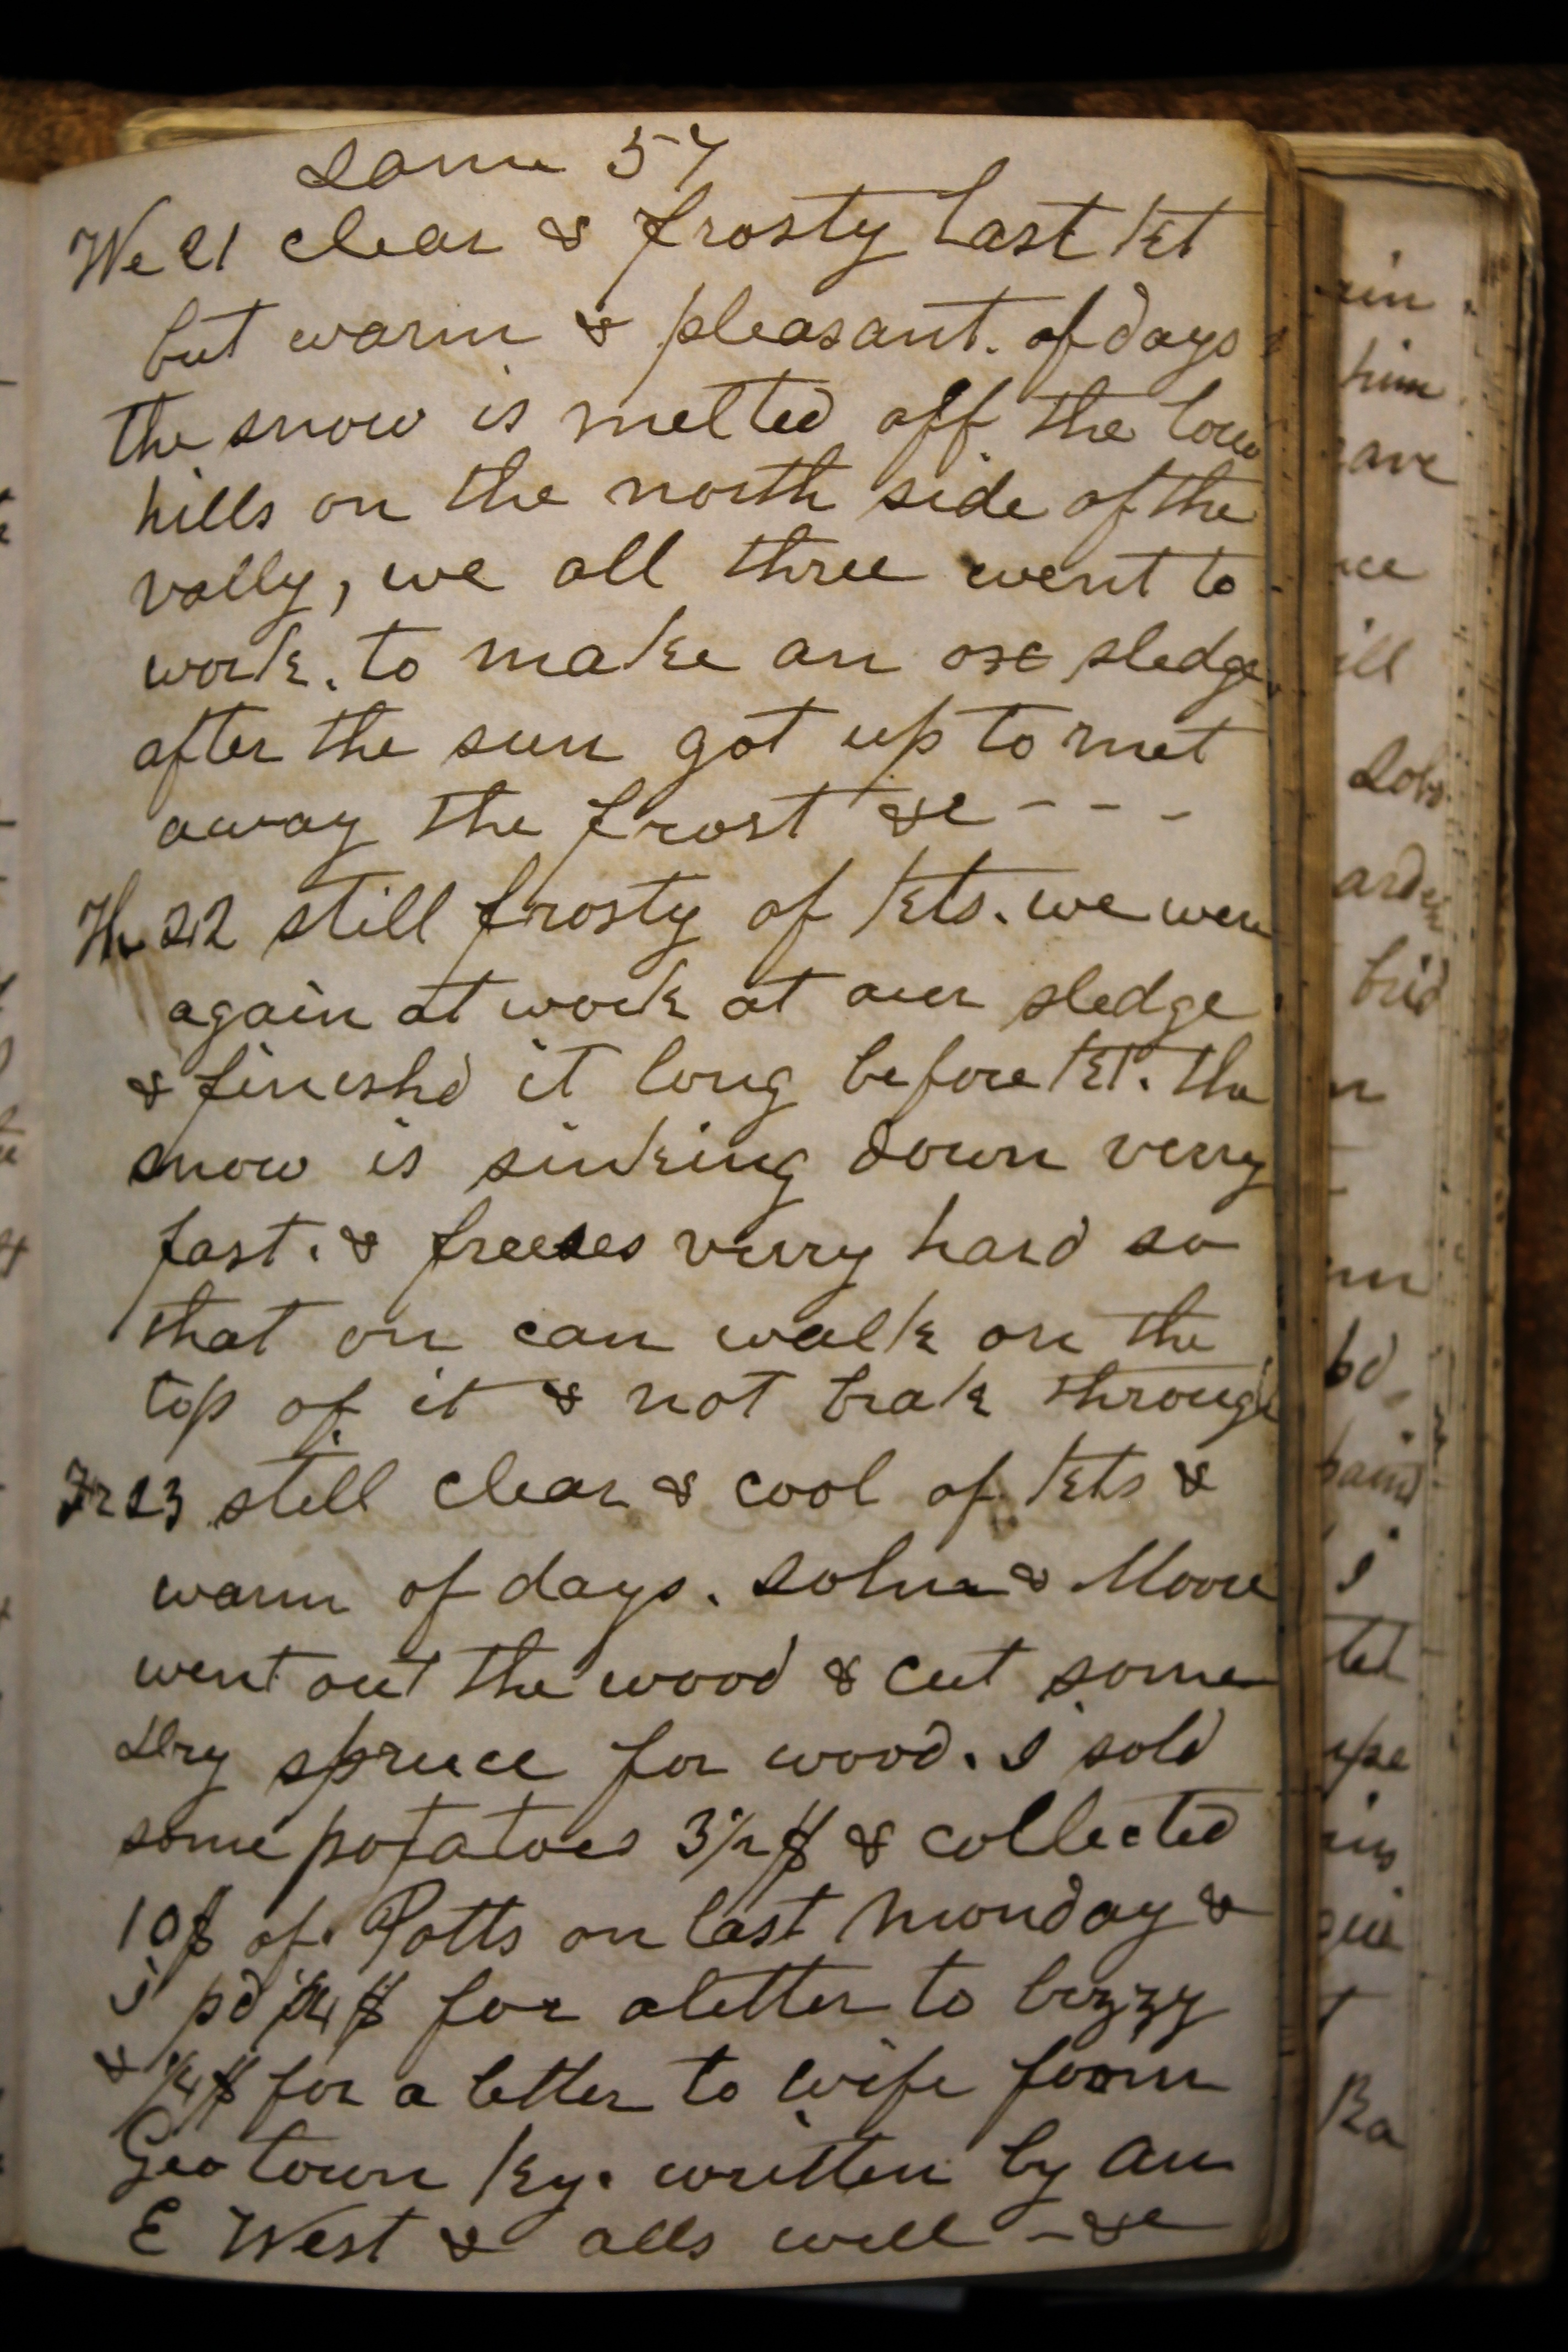 Jan 57
We 21 clear & frosty last kt
but warm & pleasant. of days
the snow is melted off the low
hills on the north side of the
vally, we all three went to
work. to make an ox sledge
after the sun got up to met
away the frost &c - - -
Th 22 still frosty of kts. we were
again at work at our sledge
& finishd it long before kt. the
snow is sinking down verry
fast. & freeses verry hard so
that on can walk on the
top of it & not brak through
Fr 23 still clear & cool of kts &
warm of days. & Moore
went out the wood & cut some
Dry spruce for wood. I sold
some potatoes 3½ $ & collected
10$ of Potts on last monday &
I pd ¼ $ for a letter to Lizzy
& ¼ $ for a letter to wife form
Geotown Ky. written by an
E West & alls well - &c